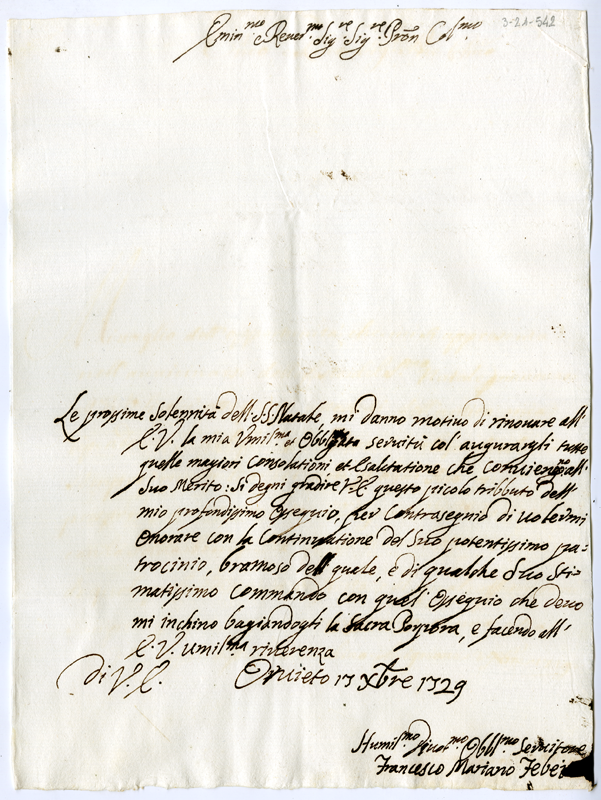 3-21-542
Emin.mo e Rever.mo Sig.re Sig.re Pron Col.mo
Le prossime Solennità dell SS. Natale, mi danno motivo di rinovare all'
E. V. la mia Umil.ma et Obbl. servitù col' augurargli tutte
quelle magiori Consolationi et Esaltatione che all'
Suo Merito. Si degni gradire V. E. questo picolo tributo dell'
mio profondissimo Ossequio, per Contrasegnio di volermi
Onorare con la Continuatione del Suo potentissimo pa-
trocinio, bramoso dell quale, e di qualche Suo Sti-
matissimo Commando con quel' Ossequio che devo
mi inchino bagiandogli la Sacra Porpora, e facendo all'
E. V. Umil.ma riverenza
Di V. E. Orvieto 13 Xbre 1729
Humil.mo Divot.mo Obbl.mo Servitore
Francesco Mariano Febei